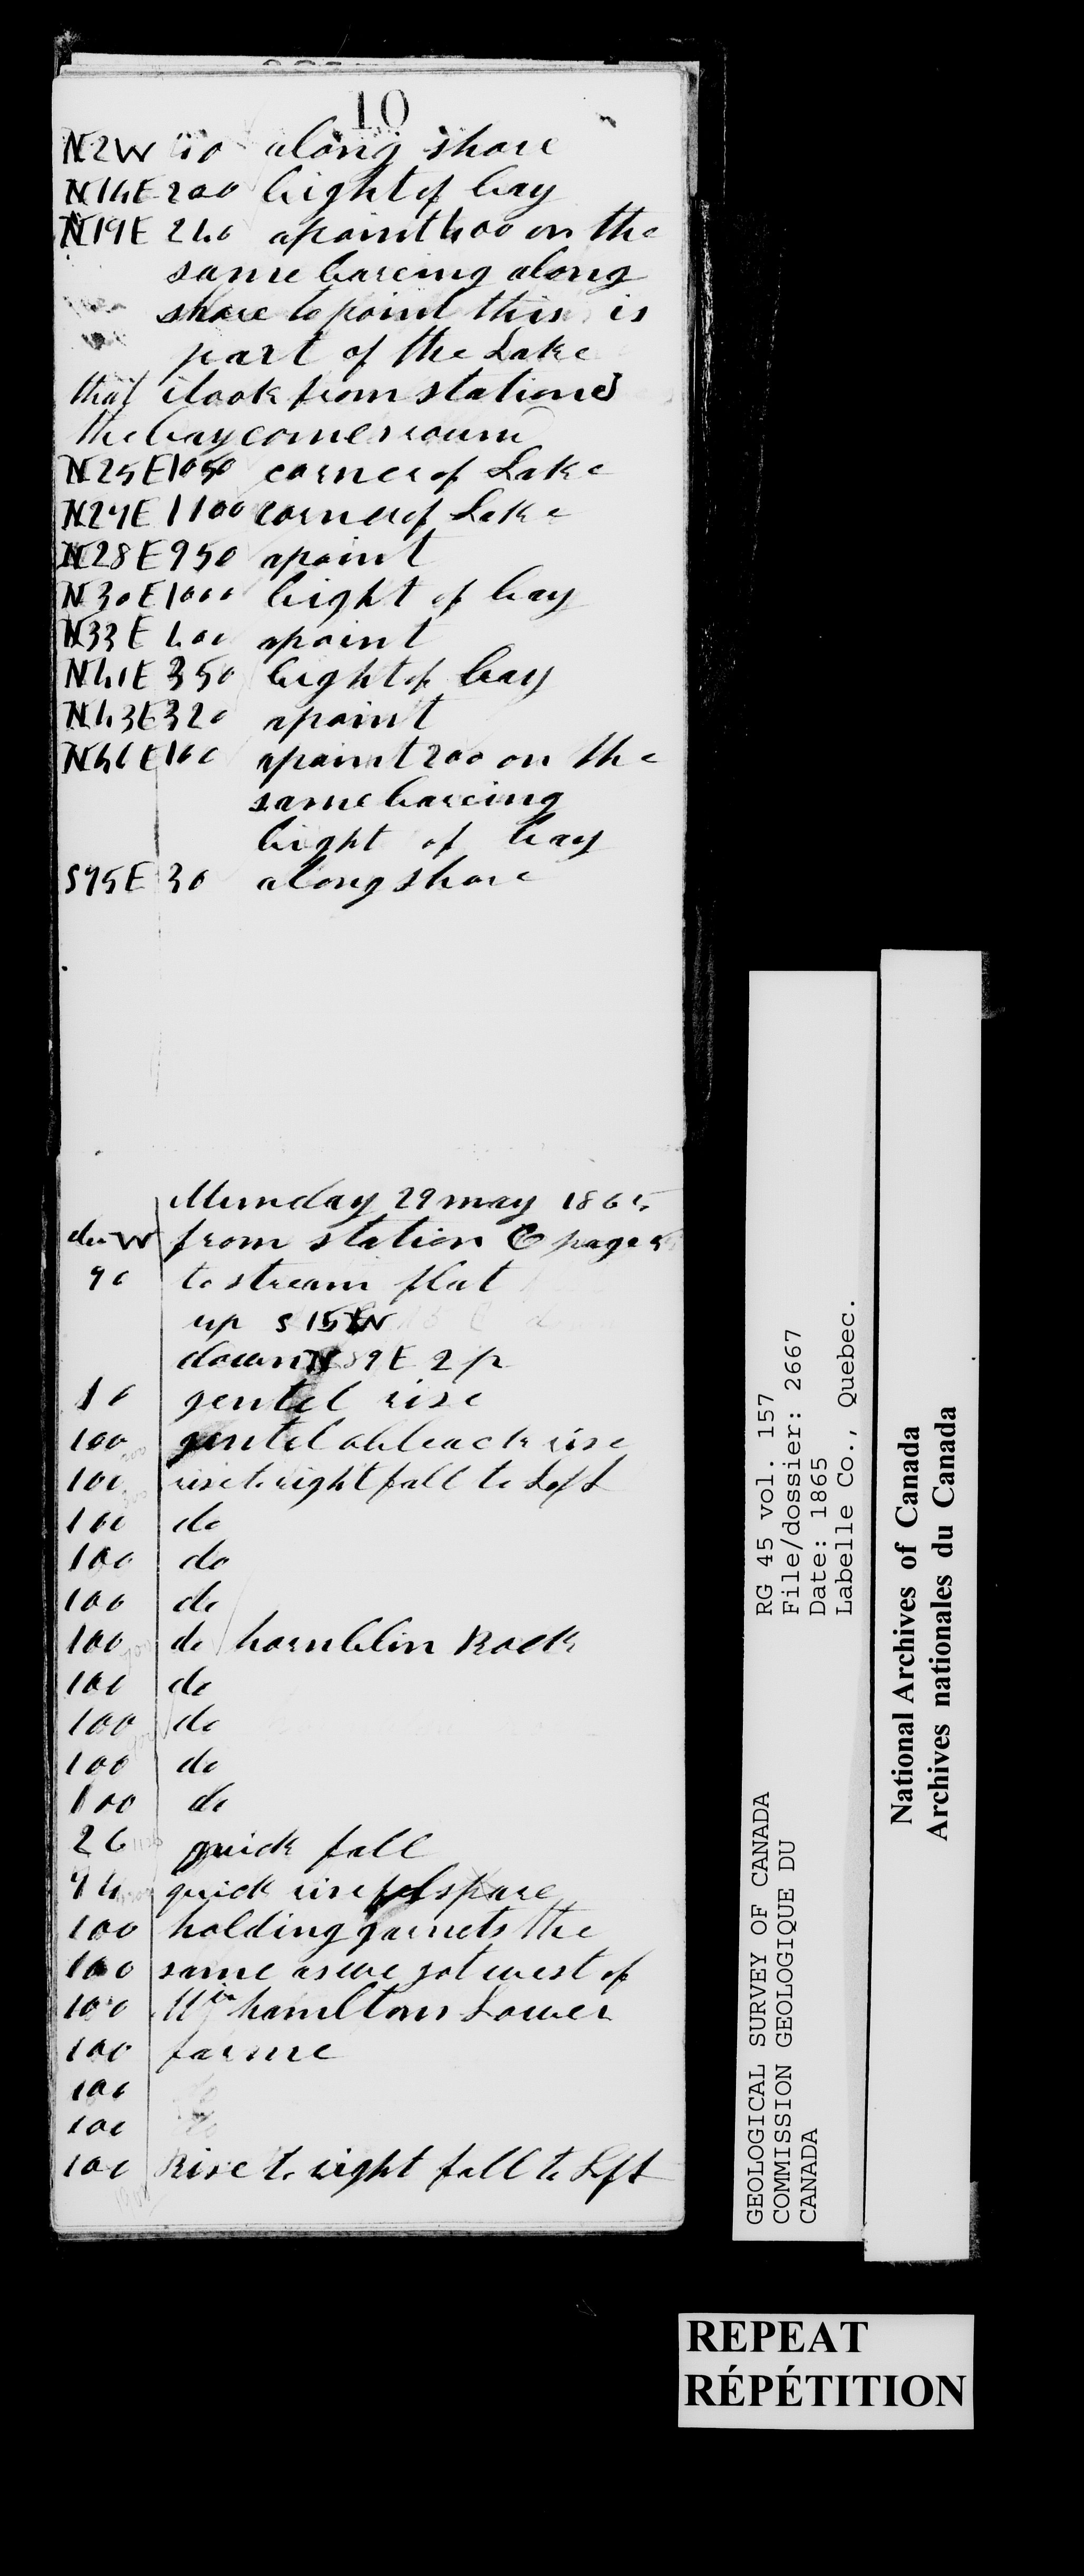 10
N2W 40 along shore
N14E 200 bight of bay
N19E 240 a point 400 on the
same bareing along
shore to point this is
part of the Lake
that i took from station
the bay comes roun
N25E 1050 corner of Lake
N27E 1100 corner of Lake
N28E 950 apoint
N30E 1000 bight of bay
N33E 400 apoint
N41E 350 bight of bay
N43E 320 apoint
N46E 160 apoint 200 on the
same bareing
bight of bay
S75E 30 along shore
Munday 29 may 1865
du W from station page
90 to stream flat
up S15W
down N 9E 2 p
10 gentel rise
100 gentel rise
100 rise to right fall to Left
100 do
100 do
100 do
100 do hornblin Rock
100 do
100 do
100 do
100 do
26 quick fall
74 quick rise
100 holding garnets the
100 same as we got west of
100 hamiltons Lower
100 farme
100
100
100 Rise to right fall to Left
GEOLOGICAL SURVEY OF CANADA
COMMISSION GEOLOGIQUE DU
CANADA
RG 45 vol. 157
File/dossier: 2667
Date: 1865
Labelle Co., Quebec.
National Archives of Canada
Archives nationales du Canada
REPEAT
RÉPÉTITION